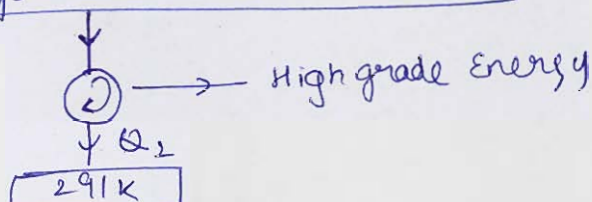 High grade Energy
Q2
291K